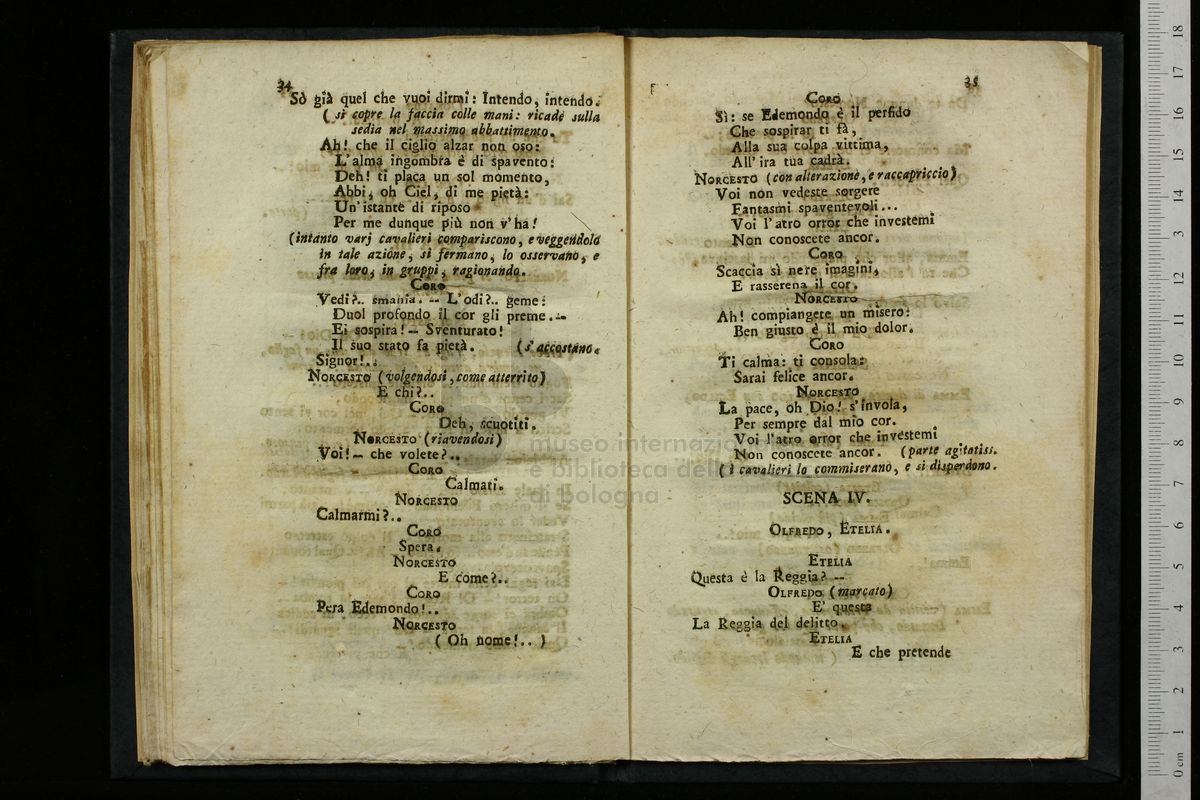 34
Sò già quel che vuoi dirmi: Intendo, intendo.
( si copre la faccia colle mani: ricade sulla
sedia nel massimo abbattimento.
Ah! che il ciglio alzar non oso:
L'alma ingombra è di spavento:
Deh! ti placa un sol momento,
Abbi, oh Ciel, di me pietà:
Un'istante di riposo
Per me dunque più non v'ha!
(intanto varj cavalieri compariscono, e veggendolo
in tale azione, si fermano, lo osservano, e
fra loro, in gruppi, ragionando.
CORO
Vedi?.. smania. — L'odi?.. geme:
Duol profondo il cor gli preme.—
Ei sospira! — Sventurato!
Il suo stato fa pietà. (s'accostano.
Signor!..
NORCESTO (volgendosi, come atterrito)
E chi?..
CORO
Deh, scuotiti.
NORCESTO (riavendosi)
Voi! — che volete?..
CORO
Calmati.
NORCESTO
Calmarmi?..
CORO
Spera.
NORCESTO
E come?..
CORO
Pera Edemondo!..
NORCESTO
( Oh nome!.. )
35
CORO
Sì: se Edemondo è il perfido
Che sospirar ti fà,
Alla sua colpa vittima,
All'ira tua cadrà.
NORCESTO (con alterazione, e raccapriccio)
Voi non vedeste sorgere
Fantasmi spaventevoli...
Voi l'atro orror che investemi
Non conoscete ancor.
CORO
Scaccia sì nere imagini,
E rasserena il cor.
NORCESTO
Ah! compiangete un misero:
Ben giusto è il mio dolor.
CORO
Ti calma: ti consola:
Sarai felice ancor.
NORCESTO
La pace, oh Dio! s'invola,
Per sempre dal mio cor.
Voi l'atro orror che investemi
Non conoscete ancor. (parte agitatiss.
( i cavalieri lo commiserano, e si disperdono.
SCENA IV.
OLFREDO, ETELIA.
ETELIA
Questa è la Reggia? —
OLFREDO (marcato)
E' questa
La Reggia del delitto.
ETELIA
E che pretende
museo internazio
e biblioteca della
di bologna
0 cm 1 2 3 4 5 6 7 8 9 10 11 12 13 14 15 16 17 18